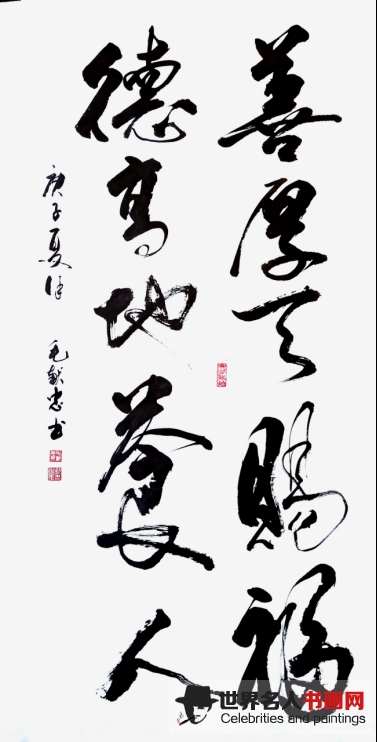 善厚天赐福
德高地养人
庚子夏月
毛献忠书
世界名人书画网
Celebrities and paintings